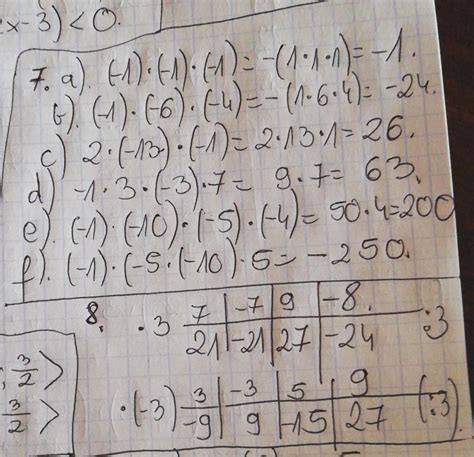 x-3) < 0.
7. a). (-1)·(-1)·(-1)= -(1·1·1)= -1.
b). (-1)·(-6)·(-4)= -(1·6·4)= -24.
c) 2·(-13)·(-1)= 2·13·1= 26.
d) -1·3·(-3)·7= 9·7= 63.
e). (-1)·(-10)·(-5)·(-4)= 50·4=200
f). (-1)·(-5·(-10)·5= -250.
8. ·3 7 -7 9 -8. :3
21 -21 27 -24
; 3/2 >
·(-3) 3 -3 5 9 (:3).
3/2 > -9 9 -15 27